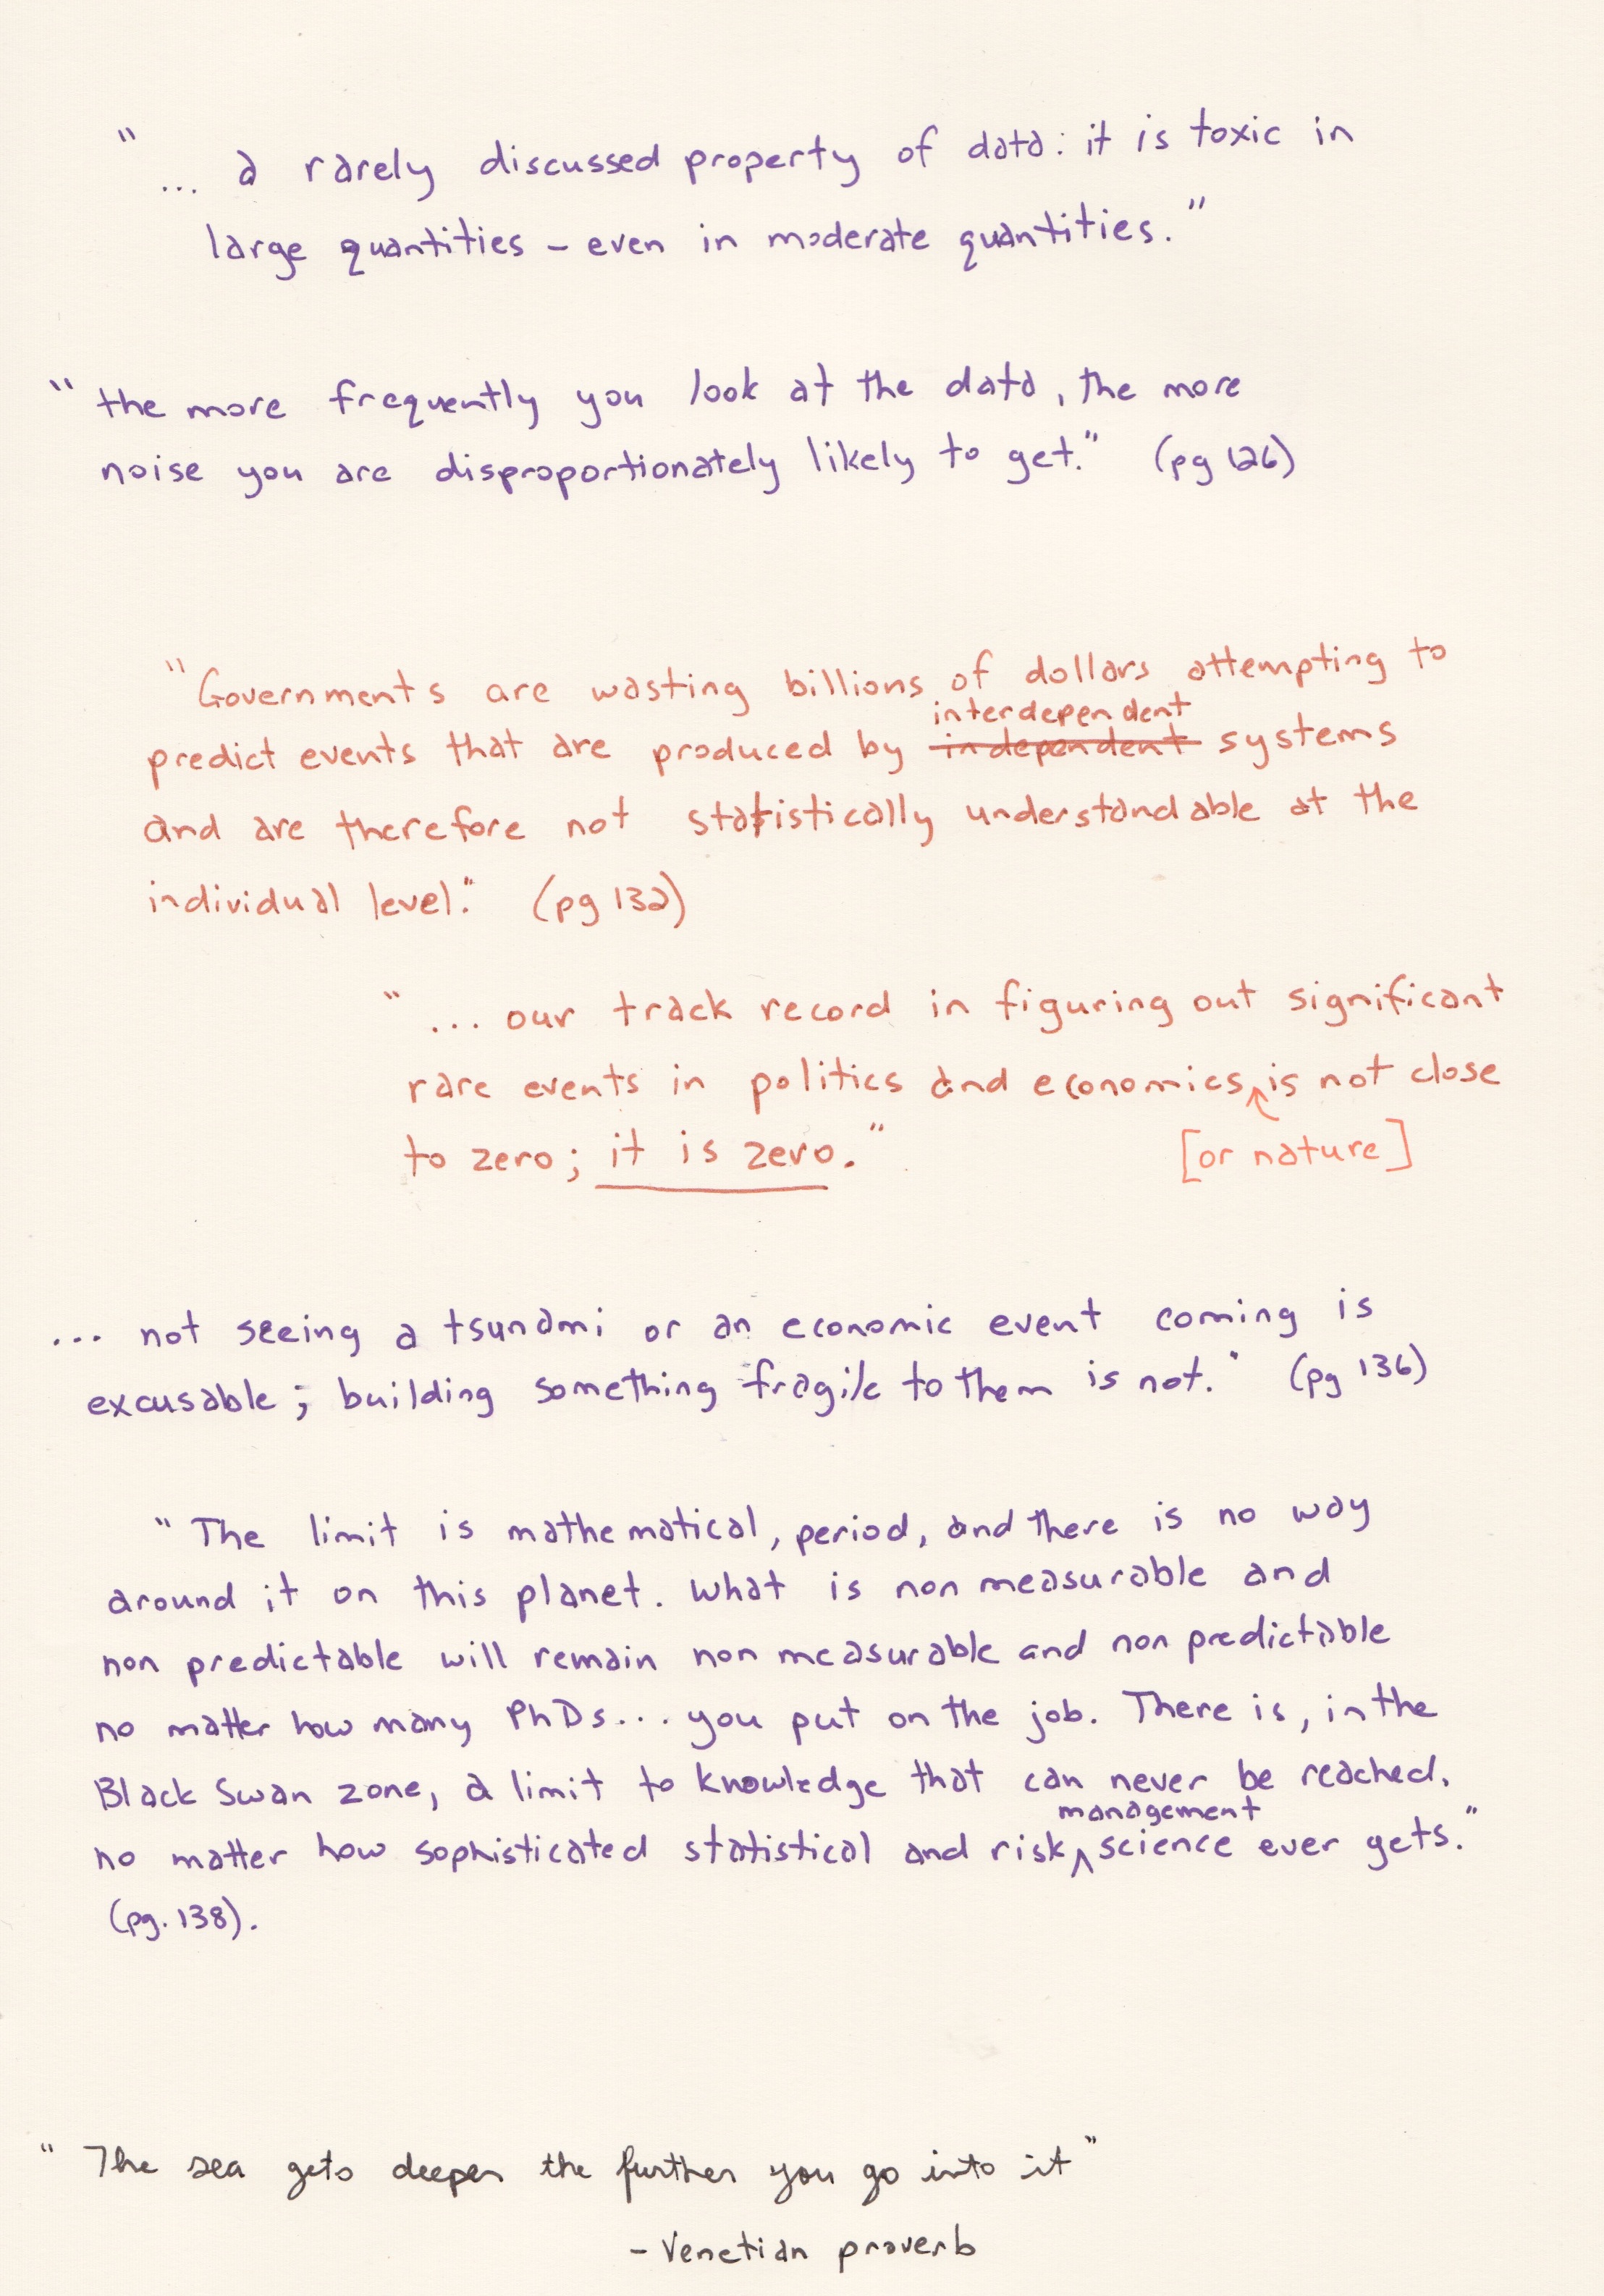 "... a rarely discussed property of data: it is toxic in
large quantities – even in moderate quantities."
"the more frequently you look at the data, the more
noise you are disproportionately likely to get." (pg 126)
"Governments are wasting billions of dollars attempting to
interdependent
predict events that are produced by independent systems
and are therefore not statistically understandable at the
individual level." (pg 132)
"... our track record in figuring out significant
rare events in politics and economics is not close
to zero; it is zero." [or nature]
... not seeing a tsunami or an economic event coming is
excusable; building something fragile to them is not." (pg 136)
"The limit is mathematical, period, and there is no way
around it on this planet. What is non measurable and
non predictable will remain non measurable and non predictable
no matter how many PhDs... you put on the job. There is, in the
Black Swan zone, a limit to knowledge that can never be reached,
management
no matter how sophisticated statistical and risk science ever gets."
(pg. 138).
"The sea gets deeper the further you go into it"
- Venetian proverb